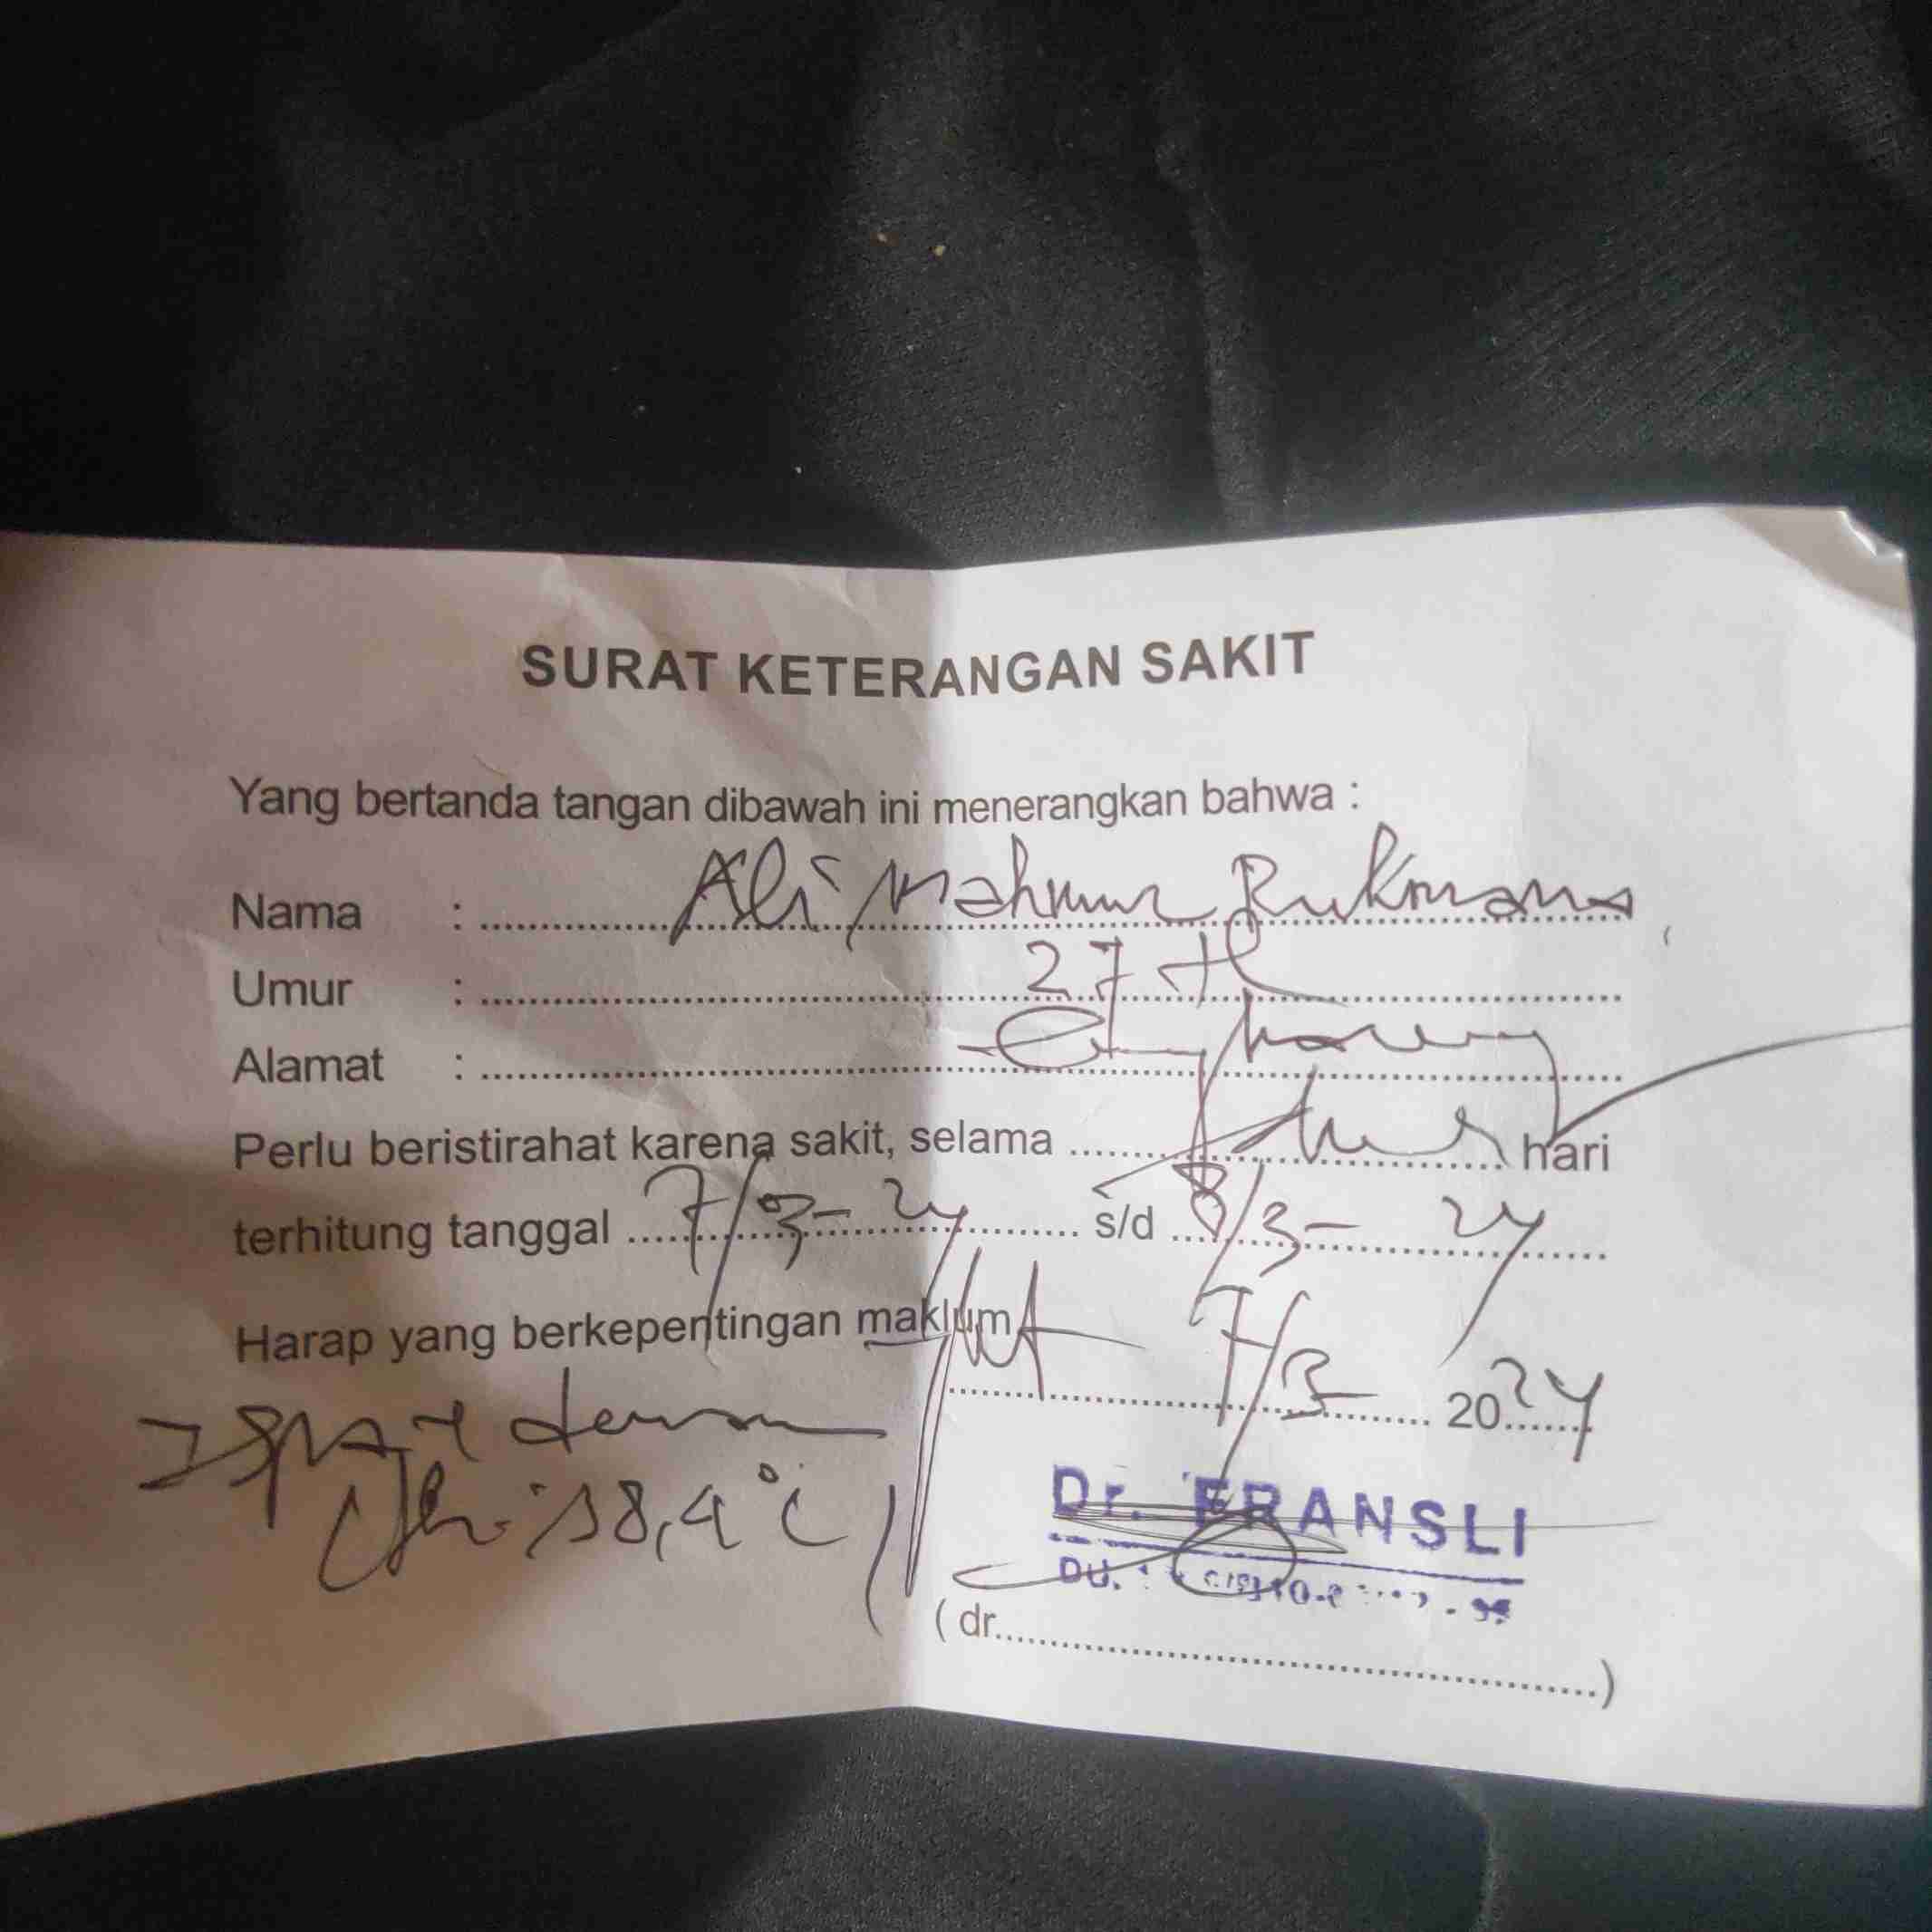 SURAT KETERANGAN SAKIT
Yang bertanda tangan dibawah ini menerangkan bahwa :
Nama : Ali Mahmur Rukmana
Umur : 27 th
Alamat :
Perlu beristirahat karena sakit, selama hari
terhitung tanggal 7/3-24 s/d 8/3-24
Harap yang berkepentingan maklum
7/3 2024
38,4°C
Dr. FRANSLI
DU.
(dr. )